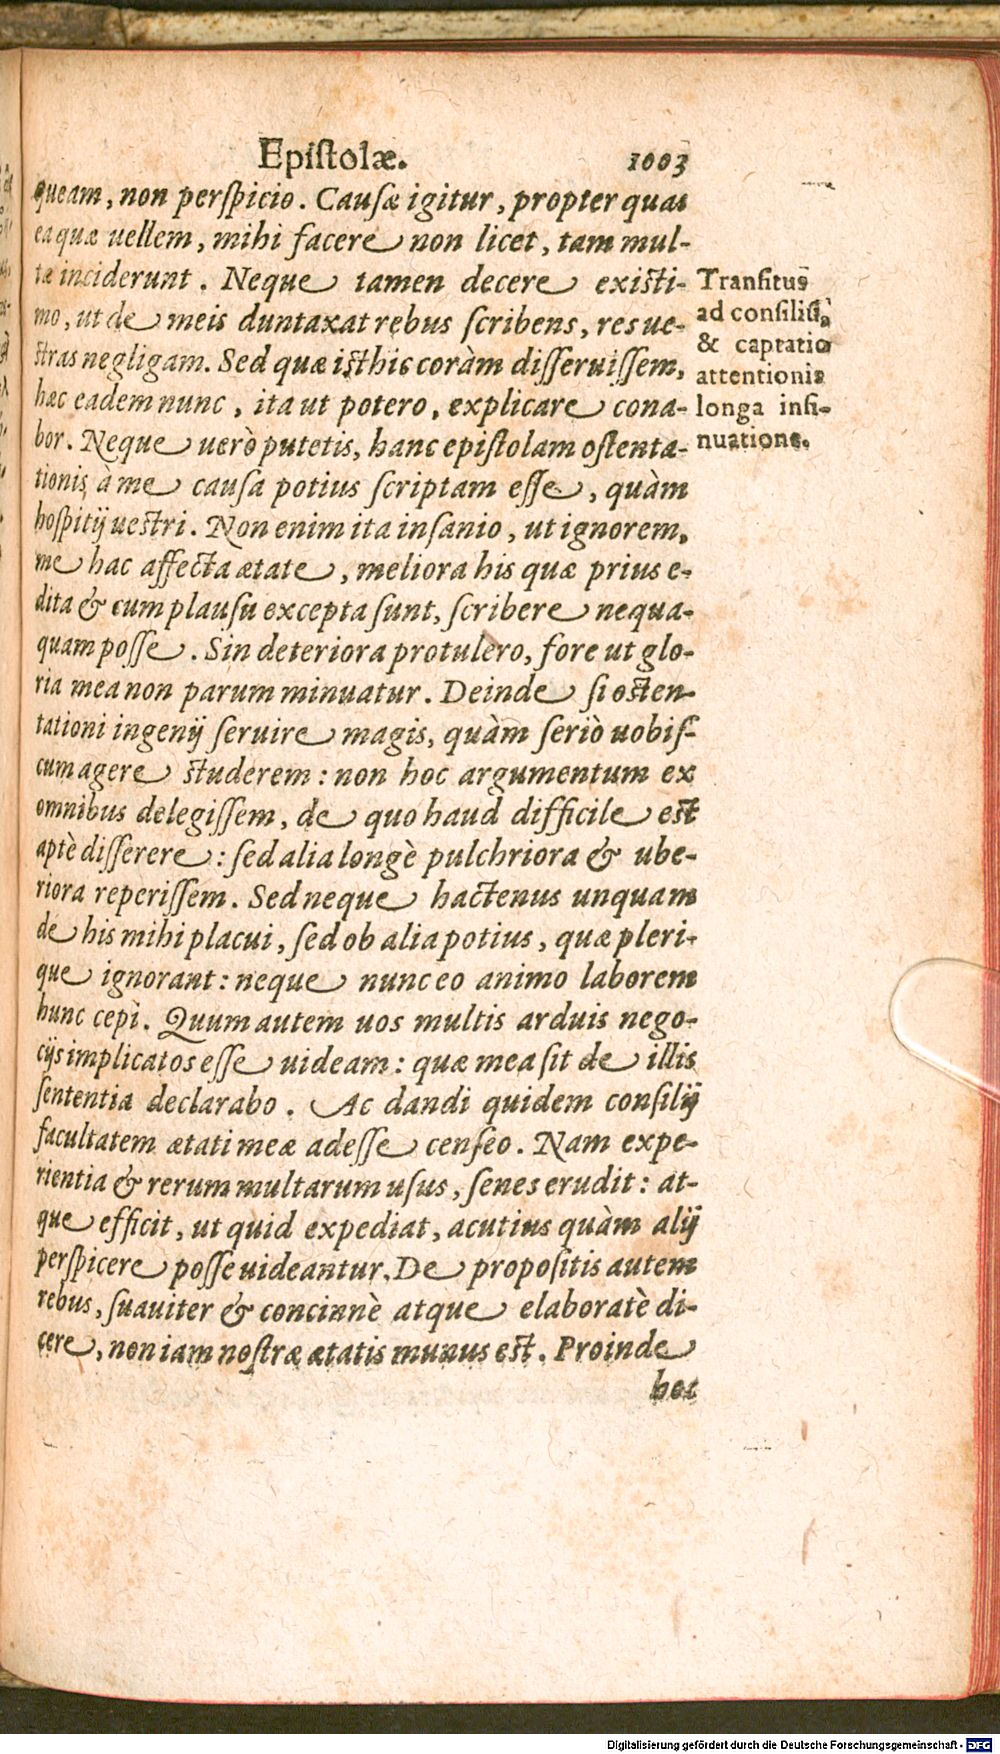 Epiſtolæ. 1003
queam, non perſpicio. Cauſæ igitur, propter quas
ea quæ uellem, mihi facere non licet, tam mul-
tæ inciderunt. Neque tamen decere existi-
mo, ut de meis duntaxat rebus ſcribens, res ue-
ſtras negligam. Sed quæ iſthic coràm diſſeruiſſem,
hæc eadem nunc, ita ut potero, explicare cona-
bor. Neque uerò putetis, hanc epiſtolam oſtenta-
tionis à me cauſa potius ſcriptam eſſe, quàm
hoſpitij ueſtri. Non enim ita inſanio, ut ignorem,
me hac affecta ætate, meliora his quæ prius e-
dita & cum plauſu excepta ſunt, ſcribere nequa-
quam poſſe. Sin deteriora protulero, fore ut glo-
ria mea non parum minuatur. Deinde ſi oſten-
tationi ingenij ſeruire magis, quàm ſeriò uobiſ-
cum agere ſtuderem: non hoc argumentum ex
omnibus delegiſſem, de quo haud difficile eſt
aptè diſſerere: ſed alia longè pulchriora & ube-
riora reperiſſem. Sed neque hactenus unquam
de his mihi placui, ſed ob alia potius, quæ pleri-
que ignorant: neque nunc eo animo laborem
hunc cepi. Quum autem uos multis arduis nego-
cijs implicatos eſſe uideam: quæ mea ſit de illis
ſententia declarabo. Ac dandi quidem conſilij
facultatem ætati meæ adeſſe cenſeo. Nam expe-
rientia & rerum multarum uſus, ſenes erudit: at-
que efficit, ut quid expediat, acutius quàm alij
perſpicere poſſe uideantur. De propoſitis autem
rebus, ſuauiter & concinnè atque elaboratè di-
cere, non iam noſtræ ætatis munus eſt. Proinde
hoc
Tranſitus
ad conſiliũ,
& captatio
attentionis
longa inſi-
nuatione.
Digitalisierung gefördert durch die Deutsche Forschungsgemeinschaft - DFG